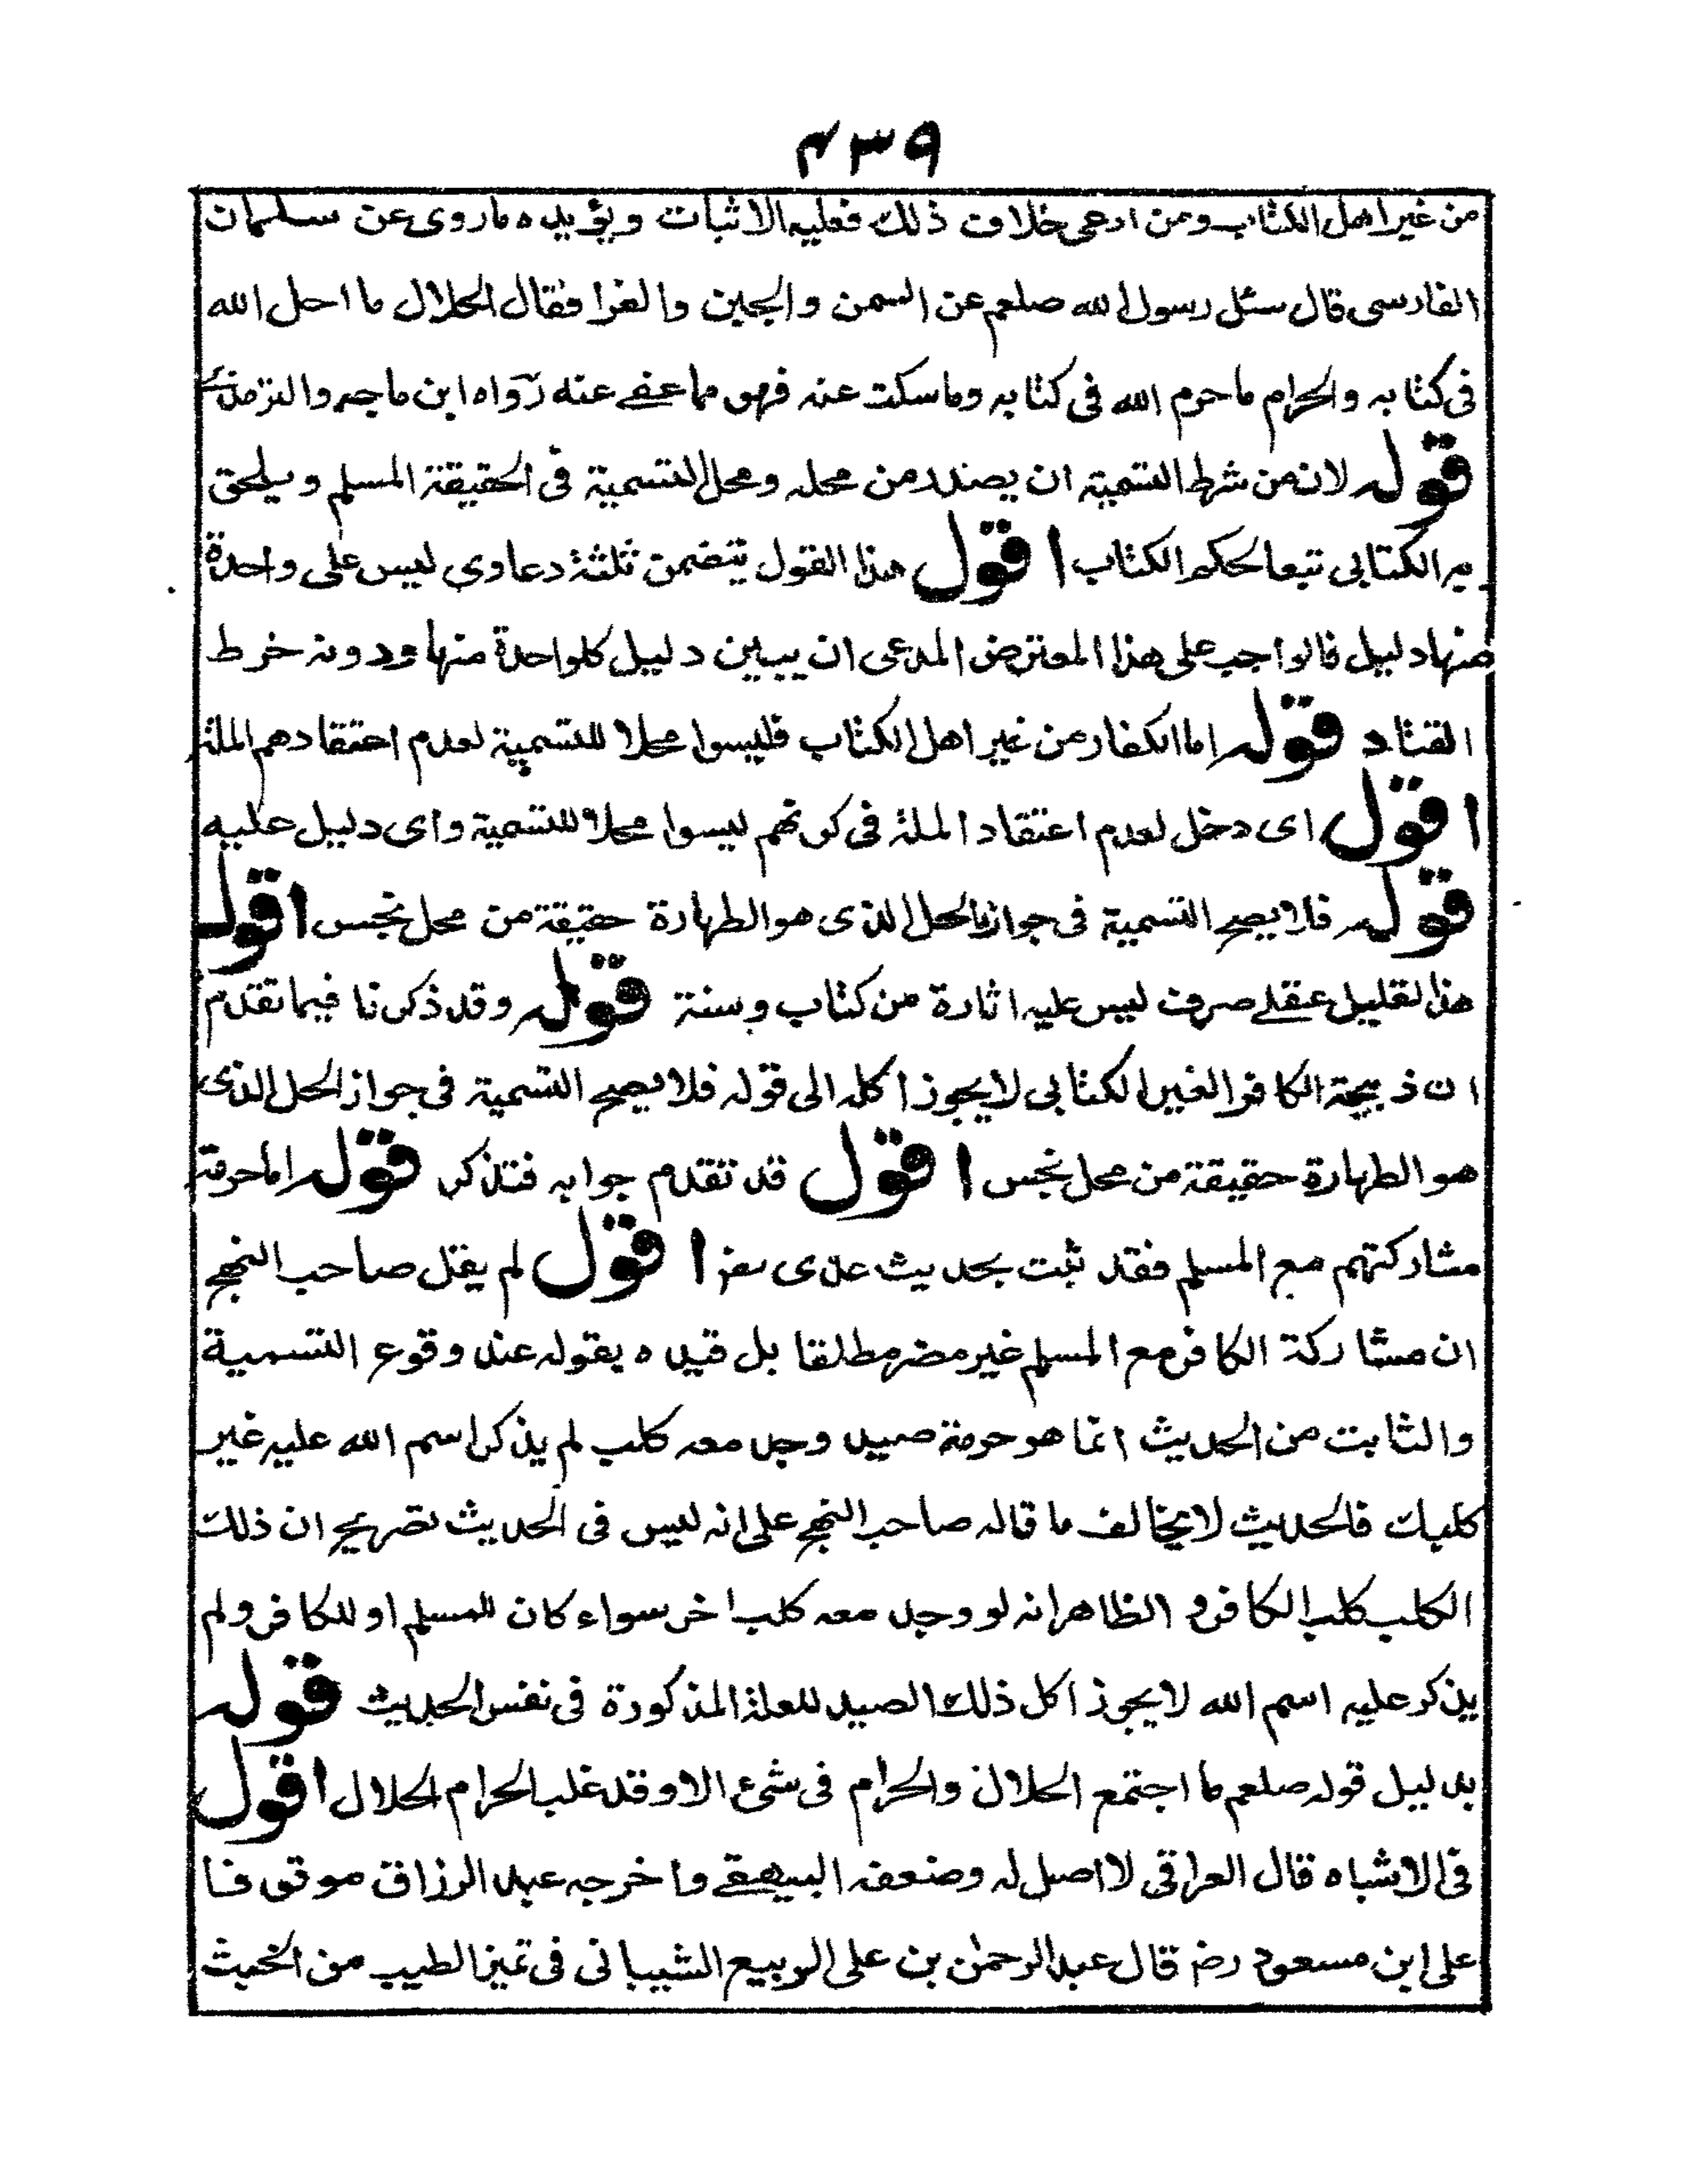 ۴۳۹
من غير اهل الكتاب ومن ادعى خلاف ذلك فعليه الاثبات ويؤيده ماروى عن سلمان
الفارسى قال سئل رسول الله صلعم عن السمن والجبن والفرا فقال الحلال ما احل الله
فى كتابه والحرام ماحرم الله فى كتابه وماسكت عنه فهو مما عفے عنه رواه ابن ماجه والترمذے
قوله لانه من شرط التسمية ان يصدر من محله ومحل التسمية فى الحقيقة المسلم ويلحق
به الكتابى تبعا لحكم الكتاب اقول هذا القول يتضمن ثلثة دعاوي ليس على واحدة
منها دليل فالواجب على هذا المعترض المدعى ان يبين دليل كلواحدة منها ودونه خرط
القتاد قوله اما الكفار من غير اهل الكتاب فليسوا محلا للتسمية لعدم اعتقادهم الملة
اقول اى دخل لعدم اعتقاد الملة فى كونهم ليسوا محلا للتسمية واى دليل عليه
قوله فلا يصح التسمية فى جواز الحل الذى هو الطهارة حقيقة من محل نجس اقول
هذا تعليل عقلے صرف ليس عليه اثارة من كتاب وسنة قوله وقد ذكرنا فيما تقدم
ان ذبيحة الكافر الغير الكتابى لا يجوز اكله الى قوله فلا يصح التسمية فى جواز الحل الذى
هو الطهارة حقيقة من محل نجس اقول قد تقدم جوابه فتذكر قوله اما حرمة
مشاركتهم مع المسلم فقد ثبت بحديث عدى اقول لم يقل صاحب النهج
ان مشاركة الكافر مع المسلم غير مضر مطلقا بل قيده بقوله عند وقوع التسمية
والثابت من الحديث انما هو حرمة صيد وجد معه كلب لم يذكر اسم الله عليه غير
كلبك فالحديث لا يخالف ما قاله صاحب النهج على انه ليس فى الحديث تصريح ان ذلك
الكلب كلب الكافر والظاهر انه لو وجد معه كلب اخر سواء كان للمسلم او للكافر ولم
يذكر عليه اسم الله لا يجوز اكل ذلك الصيد للعلة المذكورة فى نفس الحديث قوله
بدليل قوله صلعم ما اجتمع الحلال والحرام فى شئ الا وقد غلب الحرام الحلال اقول
فى الاشباه قال العراقى لا اصل له وضعفه البيهقے واخرجه عبد الرزاق موقوفا
على ابن مسعود رضـ قال عبد الرحمن بن على الربيع الشيبانى فى تميز الطيب من الخبيث